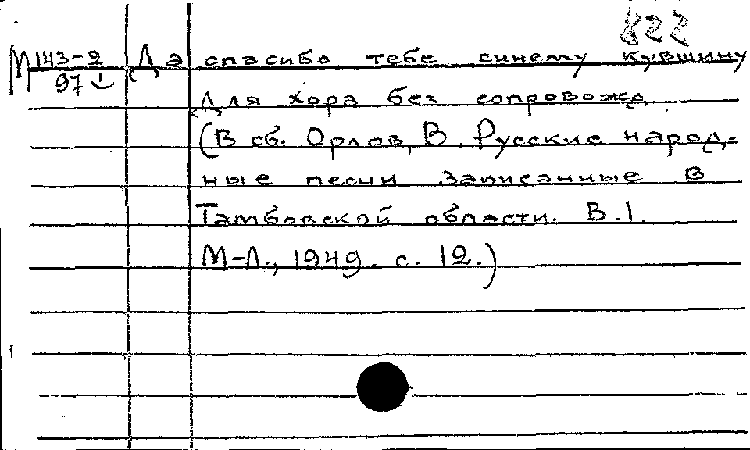 822
М 143-2 Да спасибо тебе синему кувшину
97
Для хора без сопровожд
(В сб. Орлов, В. Русские народ-
ные песни записанные в
Тамбовской области. В.1.
М-Л., 1949. с. 12.)